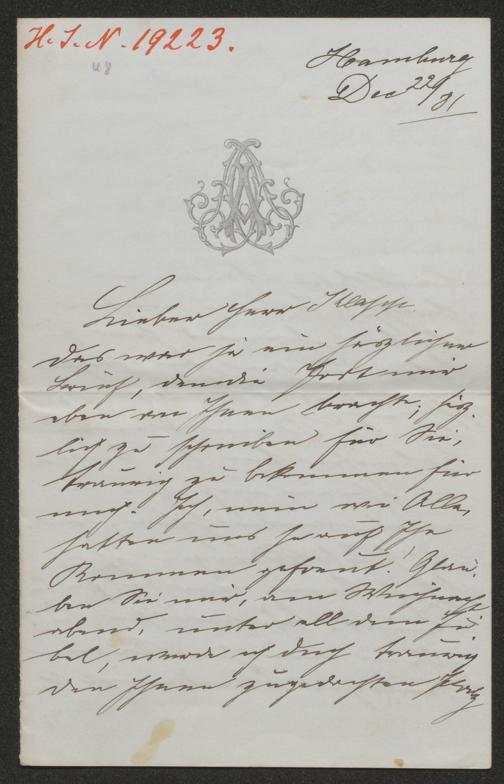 H. I. N. 19223.
48
Hamburg
Dec 22/81
Lieber Herr
das war ja ein häßlicher
Brief, den die Post mir
eben von Ihnen brachte; häß-
lich zu schreiben für Sie,
traurig zu bekommen für
mich. Ich, nein wir Alle,
hatten uns so auf Ihr
Kommen gefreut! Glau-
ben Sie mir, am Weihnacht
abend, unter all dem Ju-
bel, werde ich doch traurig
den Ihnen zugedachten Platz